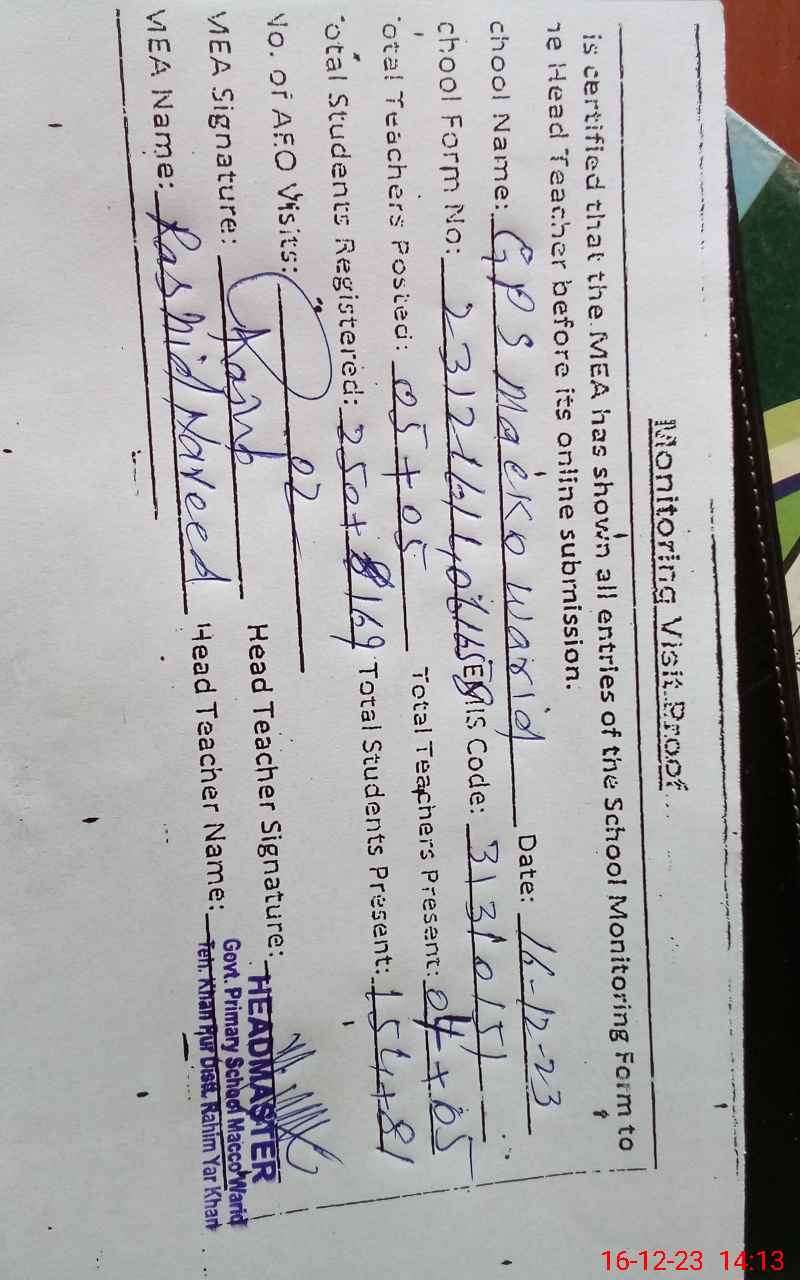 Monitoring Visit Proof
is certified that the MEA has shown all entries of the School Monitoring Form to
he Head Teacher before its online submission.
chool Name: GPS Macko warid Date: 16-12-23
chool Form No: EMIS Code: 31310151
otal Teachers Posted: 05+05 Total Teachers Present: 04+05
otal Students Registered: 250+169 Total Students Present: 154+81
No. of AEO Visits: 02
MEA Signature: Head Teacher Signature:
MEA Name: Rashid Naveed Head Teacher Name:
HEADMASTER
Govt. Primary School Macco Warid
Teh. Khan Pur Distt. Rahim Yar Khan
16-12-23 14:13